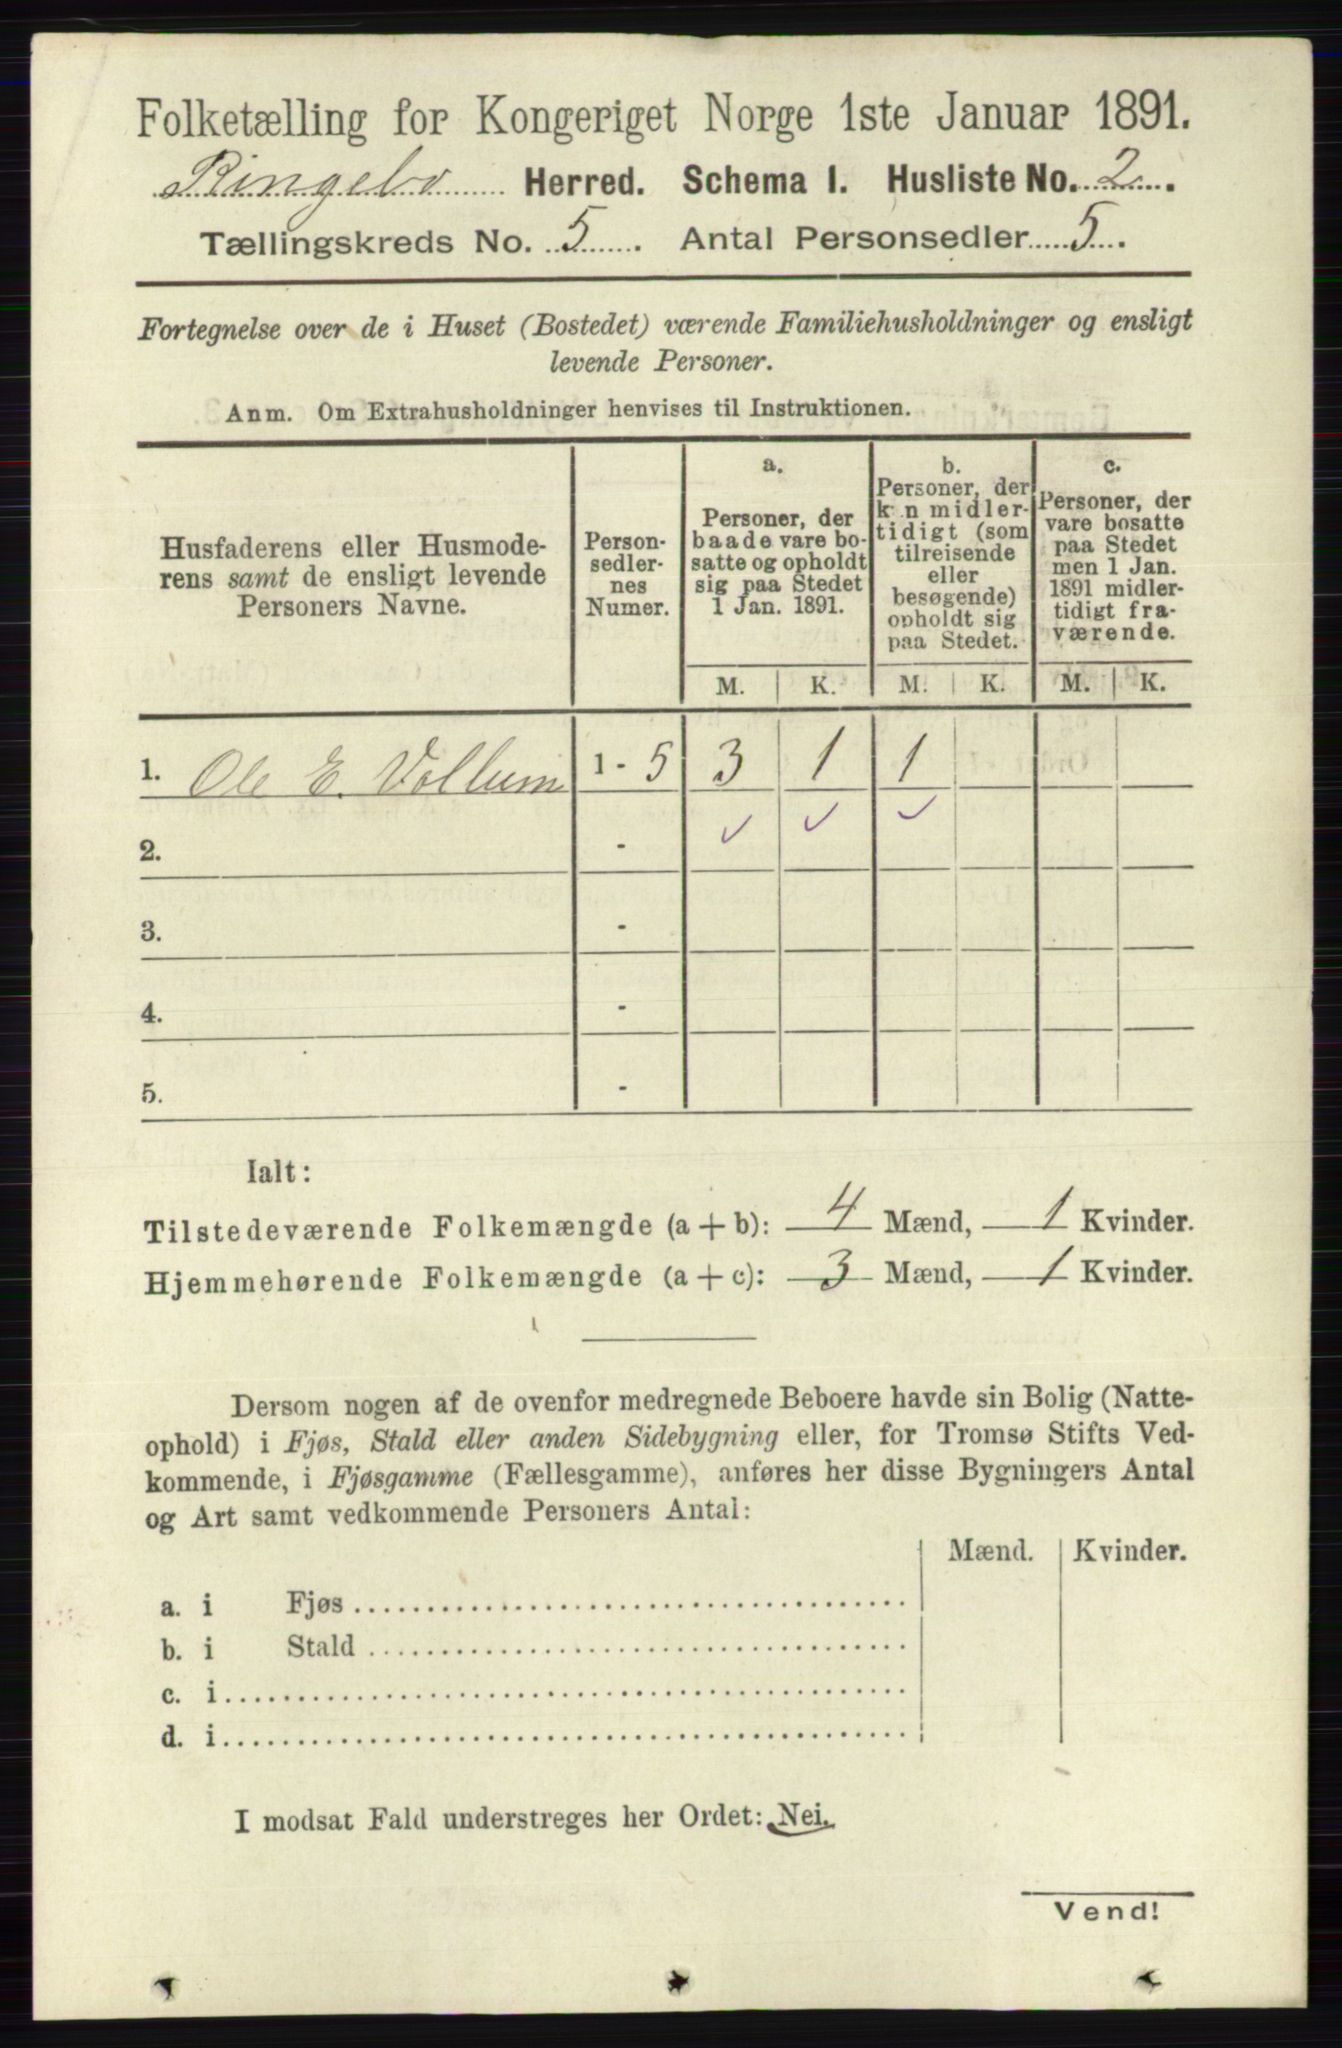 Folketælling for Kongeriget Norge 1ste Januar 1891.
Ringebo Herred. Schema I. Husliste No. 2.
Tællingskreds No. 5. Antal Personsedler 5.
Fortegnelse over de i Huset (Bostedet) værende Familiehusholdninger og ensligt
levende Personer.
Anm. Om Extrahusholdninger henvises til Instruktionen.
Husfaderens eller Husmode-
rens samt de ensligt levende
Personers Navne.
Person-
sedler-
nes
Numer.
a.
Personer, der
baade vare bo-
satte og opholdt
sig paa Stedet
1 Jan. 1891.
b.
Personer, der
kun midler-
tidigt (som
tilreisende
eller
besøgende)
opholdt sig
paa Stedet.
c.
Personer, der
vare bosatte
paa Stedet
men 1 Jan.
1891 midler-
tidigt fra-
værende.
M. K. M. K. M. K.
1. Ole E. Vollum 1 - 5 3 1 1
✓ ✓ ✓
2. -
3. -
4. -
5. -
Ialt:
Tilstedeværende Folkemængde (a + b): 4 Mænd, 1 Kvinder.
Hjemmehørende Folkemængde (a + c): 3 Mænd, 1 Kvinder.
Dersom nogen af de ovenfor medregnede Beboere havde sin Bolig (Natte-
ophold) i Fjøs, Stald eller anden Sidebygning eller, for Tromsø Stifts Ved-
kommende, i Fjøsgamme (Fællesgamme), anføres her disse Bygningers Antal
og Art samt vedkommende Personers Antal:
Mænd. Kvinder.
a. i Fjøs
b. i Stald
c. i
d. i
I modsat Fald understreges her Ordet: Nei.
Vend!